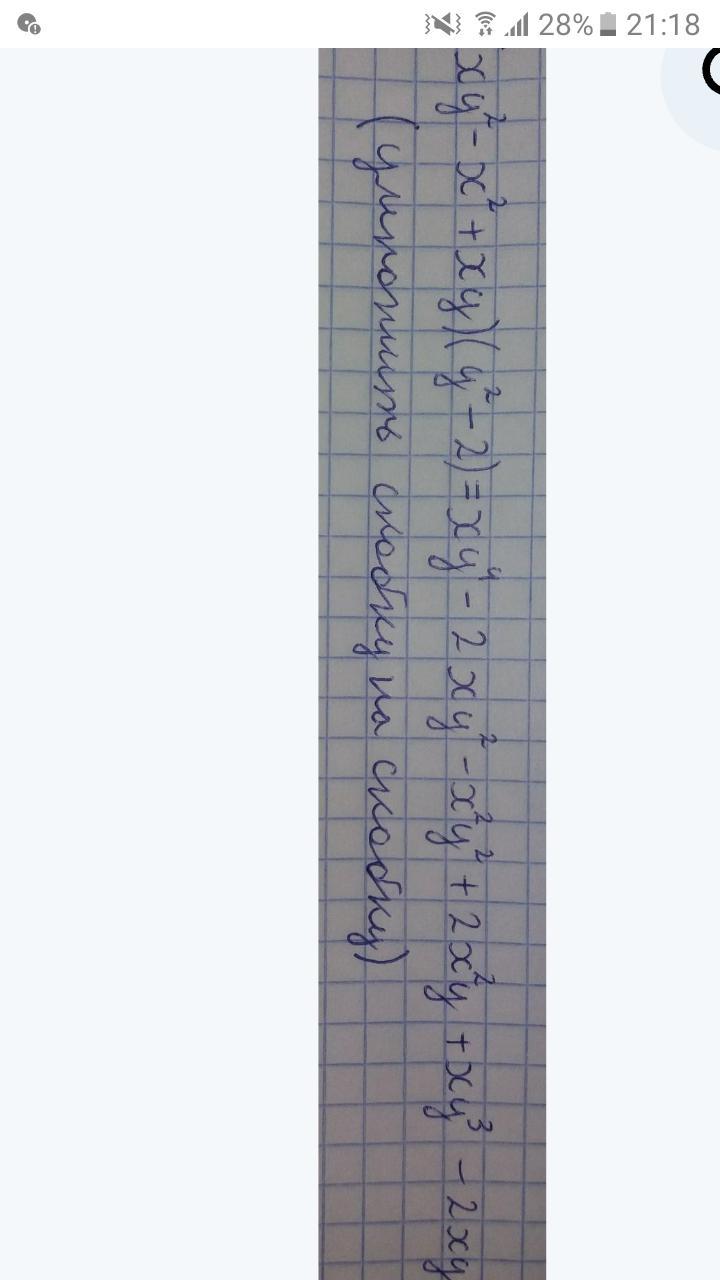 28% 21:18
xy² - x² + xy)(y² - 2) = xy⁴ - 2xy² - x²y² + 2x²y + xy³ - 2xy
(умножить скобку на скобку)